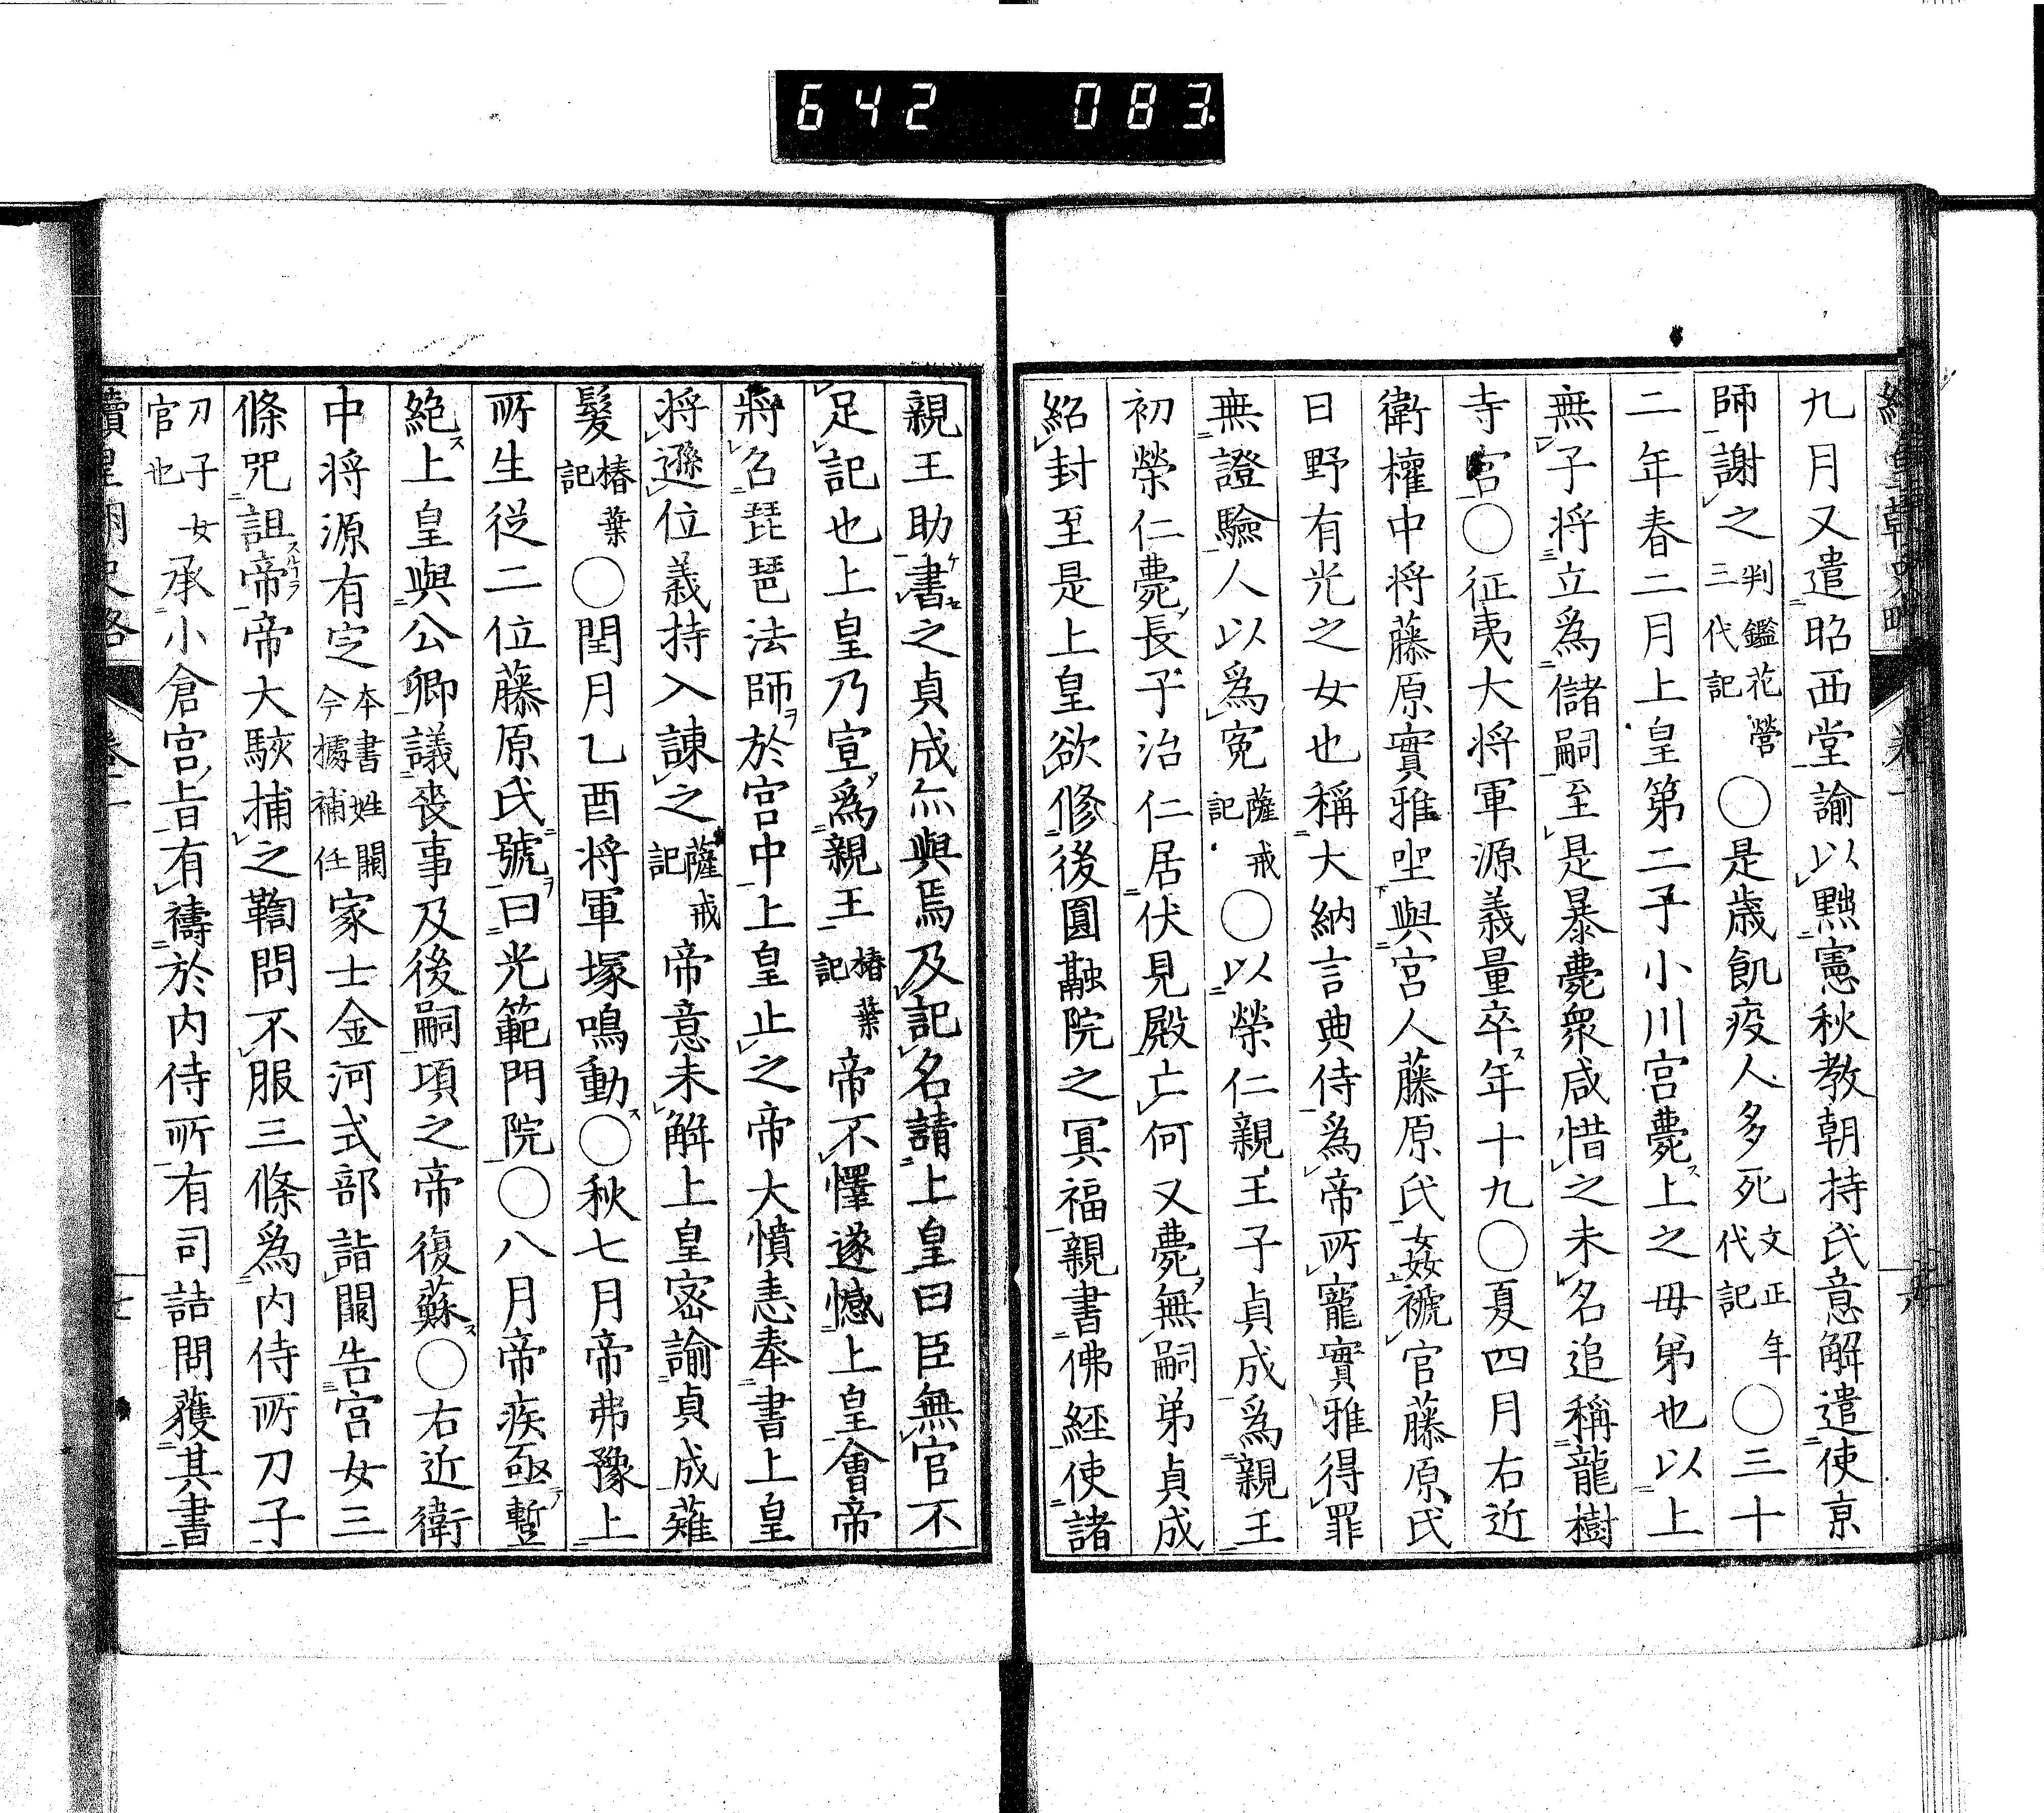 642 083
九月又遣昭西堂諭以黙憲秋教朝持氏意解遣使京
師謝之判鑑花營三代記○是歳飢疫人多死文正年代記○三十
二年春二月上皇第二子小川宮薨上之母弟也以上
無子將立爲儲嗣至是暴薨衆咸惜之未名追稱龍樹
寺宮○征夷大將軍源義量卒年十九○夏四月右近
衛權中將藤原實雅坐與宮人藤原氏姦褫官藤原氏
日野有光之女也稱大納言典侍爲帝所寵實雅得罪
無證驗人以爲寃薩戒記○以榮仁親王子貞成爲親王
初榮仁薨長子治仁居伏見殿亡何又薨無嗣弟貞成
紹封至是上皇欲修後圓融院之冥福親書佛經使諸
親王助書之貞成亦與焉及記名請上皇曰臣無官不
足記也上皇乃宣爲親王椿葉記帝不懌遂憾上皇會帝
將召琵琶法師於宮中上皇止之帝大憤恚奉書上皇
將遜位義持入諫之薩戒記帝意未解上皇密諭貞成薙
髮椿葉記○閏月乙酉將軍塚鳴動○秋七月帝弗豫上
所生從二位藤原氏號曰光範門院○八月帝疾亟暫
絶上皇與公卿議喪事及後嗣項之帝復蘇○右近衛
中將源有定本書姓闕今據補任家士金河式部詣闕告宮女三
條咒詛帝帝大駭捕之鞫問不服三條爲内侍所刀子
刀子女官也承小倉宮旨有禱於内侍所有司詰問獲其書